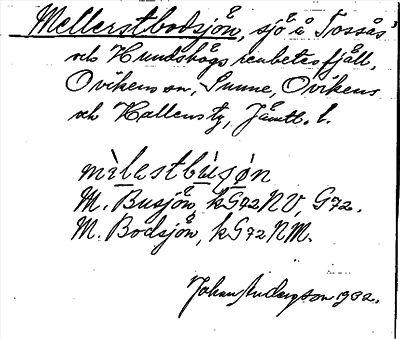 Mellerstbodsjön, sjö å Tossås'
och Hundshögs renbetesfjäll,
Ovikens sn, Sunne, Ovikens
och Hallens tg, Jämtl. l.
mìlestbùsjøn
M. Busjön, kG72NV, G72.
M. Bodsjön, kG72NM.
Johan Anderson 1932.